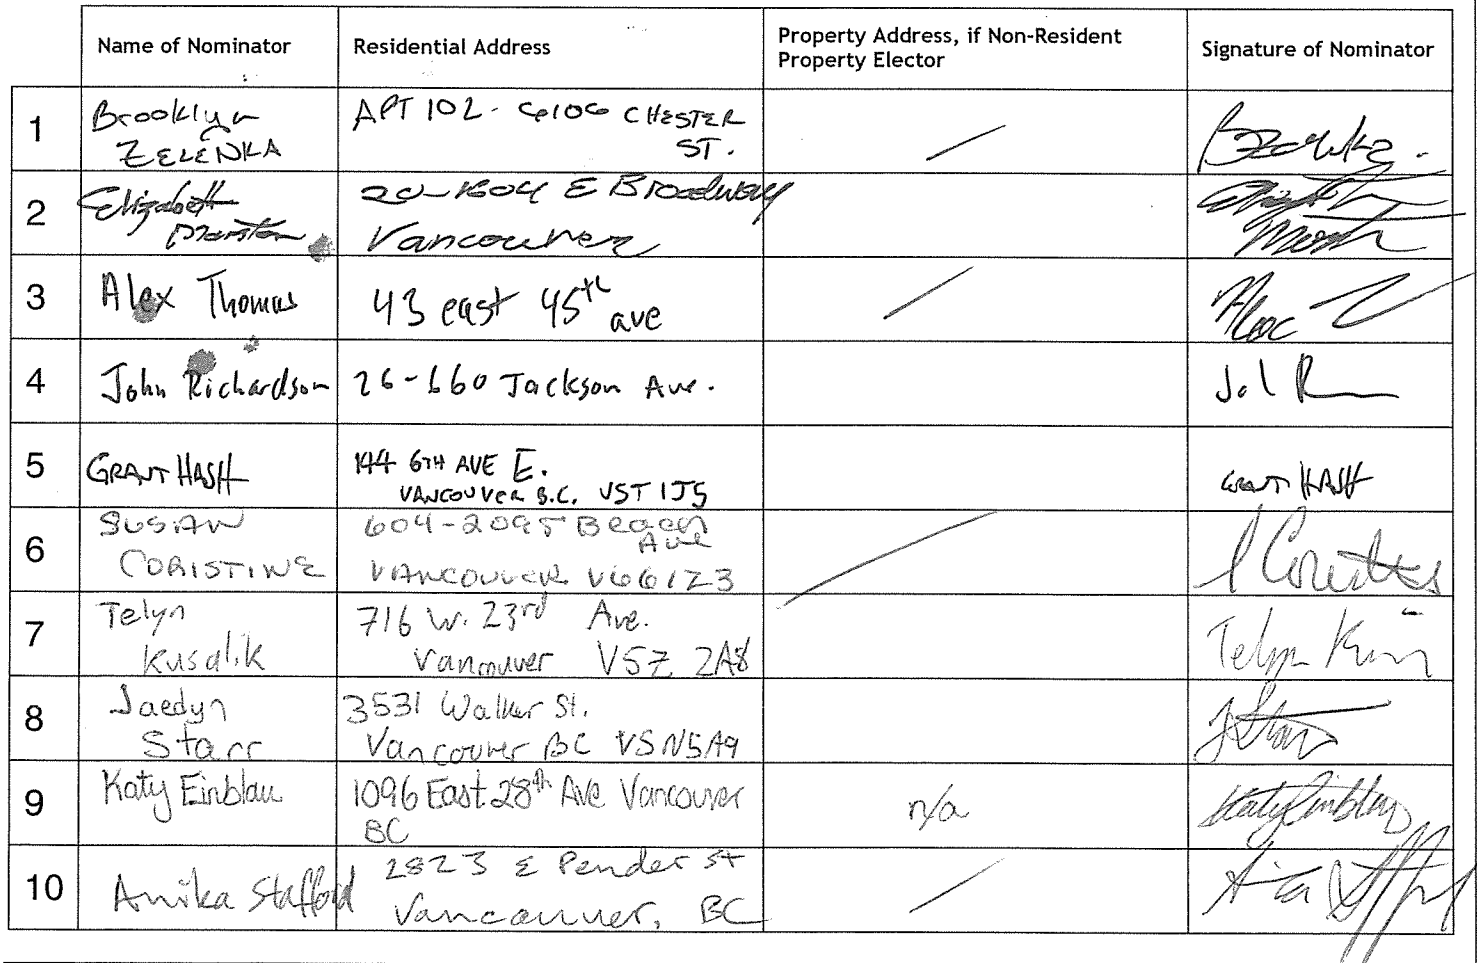 Name of Nominator
Residential Address
Property Address, if Non-Resident
Property Elector
Signature of Nominator
1
Brooklyn
ZELENKA
APT 102 - 6106 CHESTER
ST.
2
Elizabeth
Marston
20-1604 E Broadway
Vancouver
3
Alex Thomas
43 east 45th
ave
4
John Richardson
26-660 Jackson Ave.
5
GRANT HASH
144 6TH AVE E.
VANCOUVER B.C. V5T 1J5
GRANT HASH
6
SUSAN
CORISTINE
604-2095 Beach
Ave
VANCOUVER V6G1Z3
7
Telyn
Kusalik
716 W. 23rd Ave.
Vancouver V5Z 2A8
Telyn
8
Jaedyn
Starr
3531 Walker St.
Vancouver BC V5N5A9
J Starr
9
Katy Einblau
1096 East 28th Ave Vancouver
BC
n/a
Katy Einblau
10
Anika Stafford
2823 E Pender St
Vancouver, BC